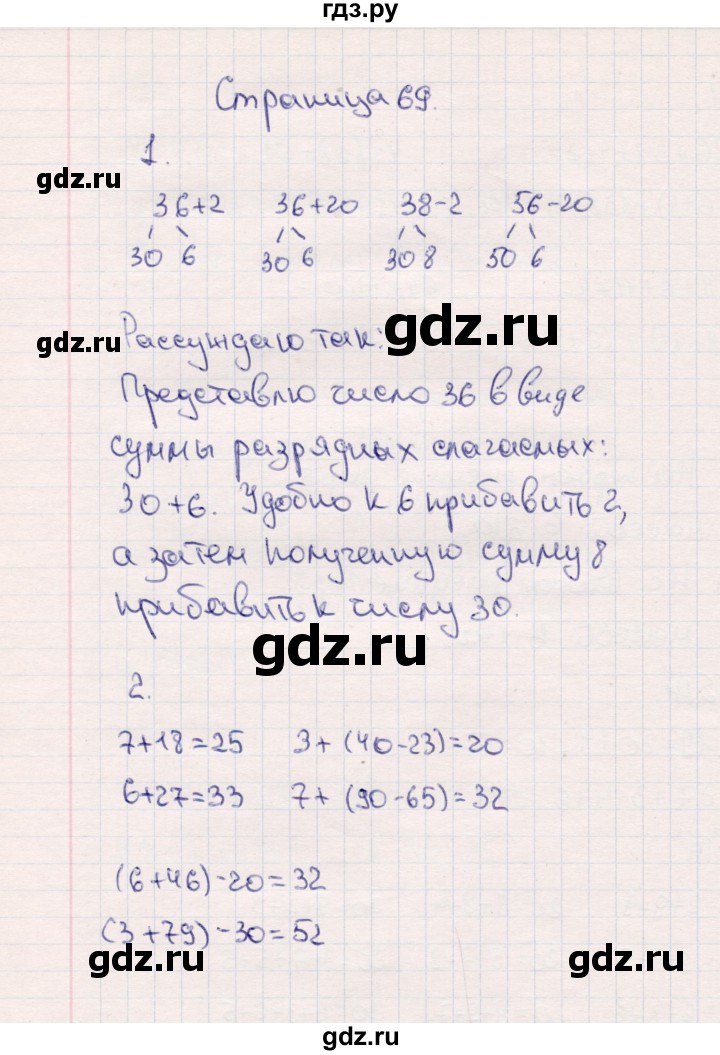 гдз.ру
Страница 69.
1.
gdz.ru
36+2 36+20 38-2 56-20
30 6 30 6 30 8 50 6
gdz.ru
gdz.ru
Рассуждаю так:
Представлю число 36 в виде
суммы разрядных слагаемых:
30+6. Удобно к 6 прибавить 2,
а затем полученную сумму 8
прибавить к числу 30.
gdz.ru
2.
7+18=25 3+(40-23)=20
6+27=33 7+(90-65)=32
(6+46)-20=32
(3+79)-30=52
gdz.ru gdz.ru
gdz.ru